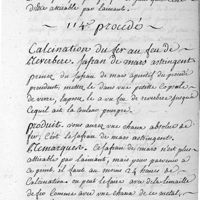 d'être attirable par laimant.
114e procédé
Calcination du fer au feu de
Reverbere. Safran de mars astringent
prenez du safran de mars aperitif du procédé
precedent, mettez le dans une petite coupelle
de verre, a un feu de reverbere jusqu'a
cequil ait la couleur pourpre.
produit. vous aurez une chaux absolue de
fer; C'est le safran de mars astringent.
Remarques. Ce safran de mars n'est plus
attirable par laimant, mais pour parvenir a
ce point, il faut au moins 24 heures de
Calcination on peut le faire avec de la limaille
de fer comme avec une chaux de ce metal,